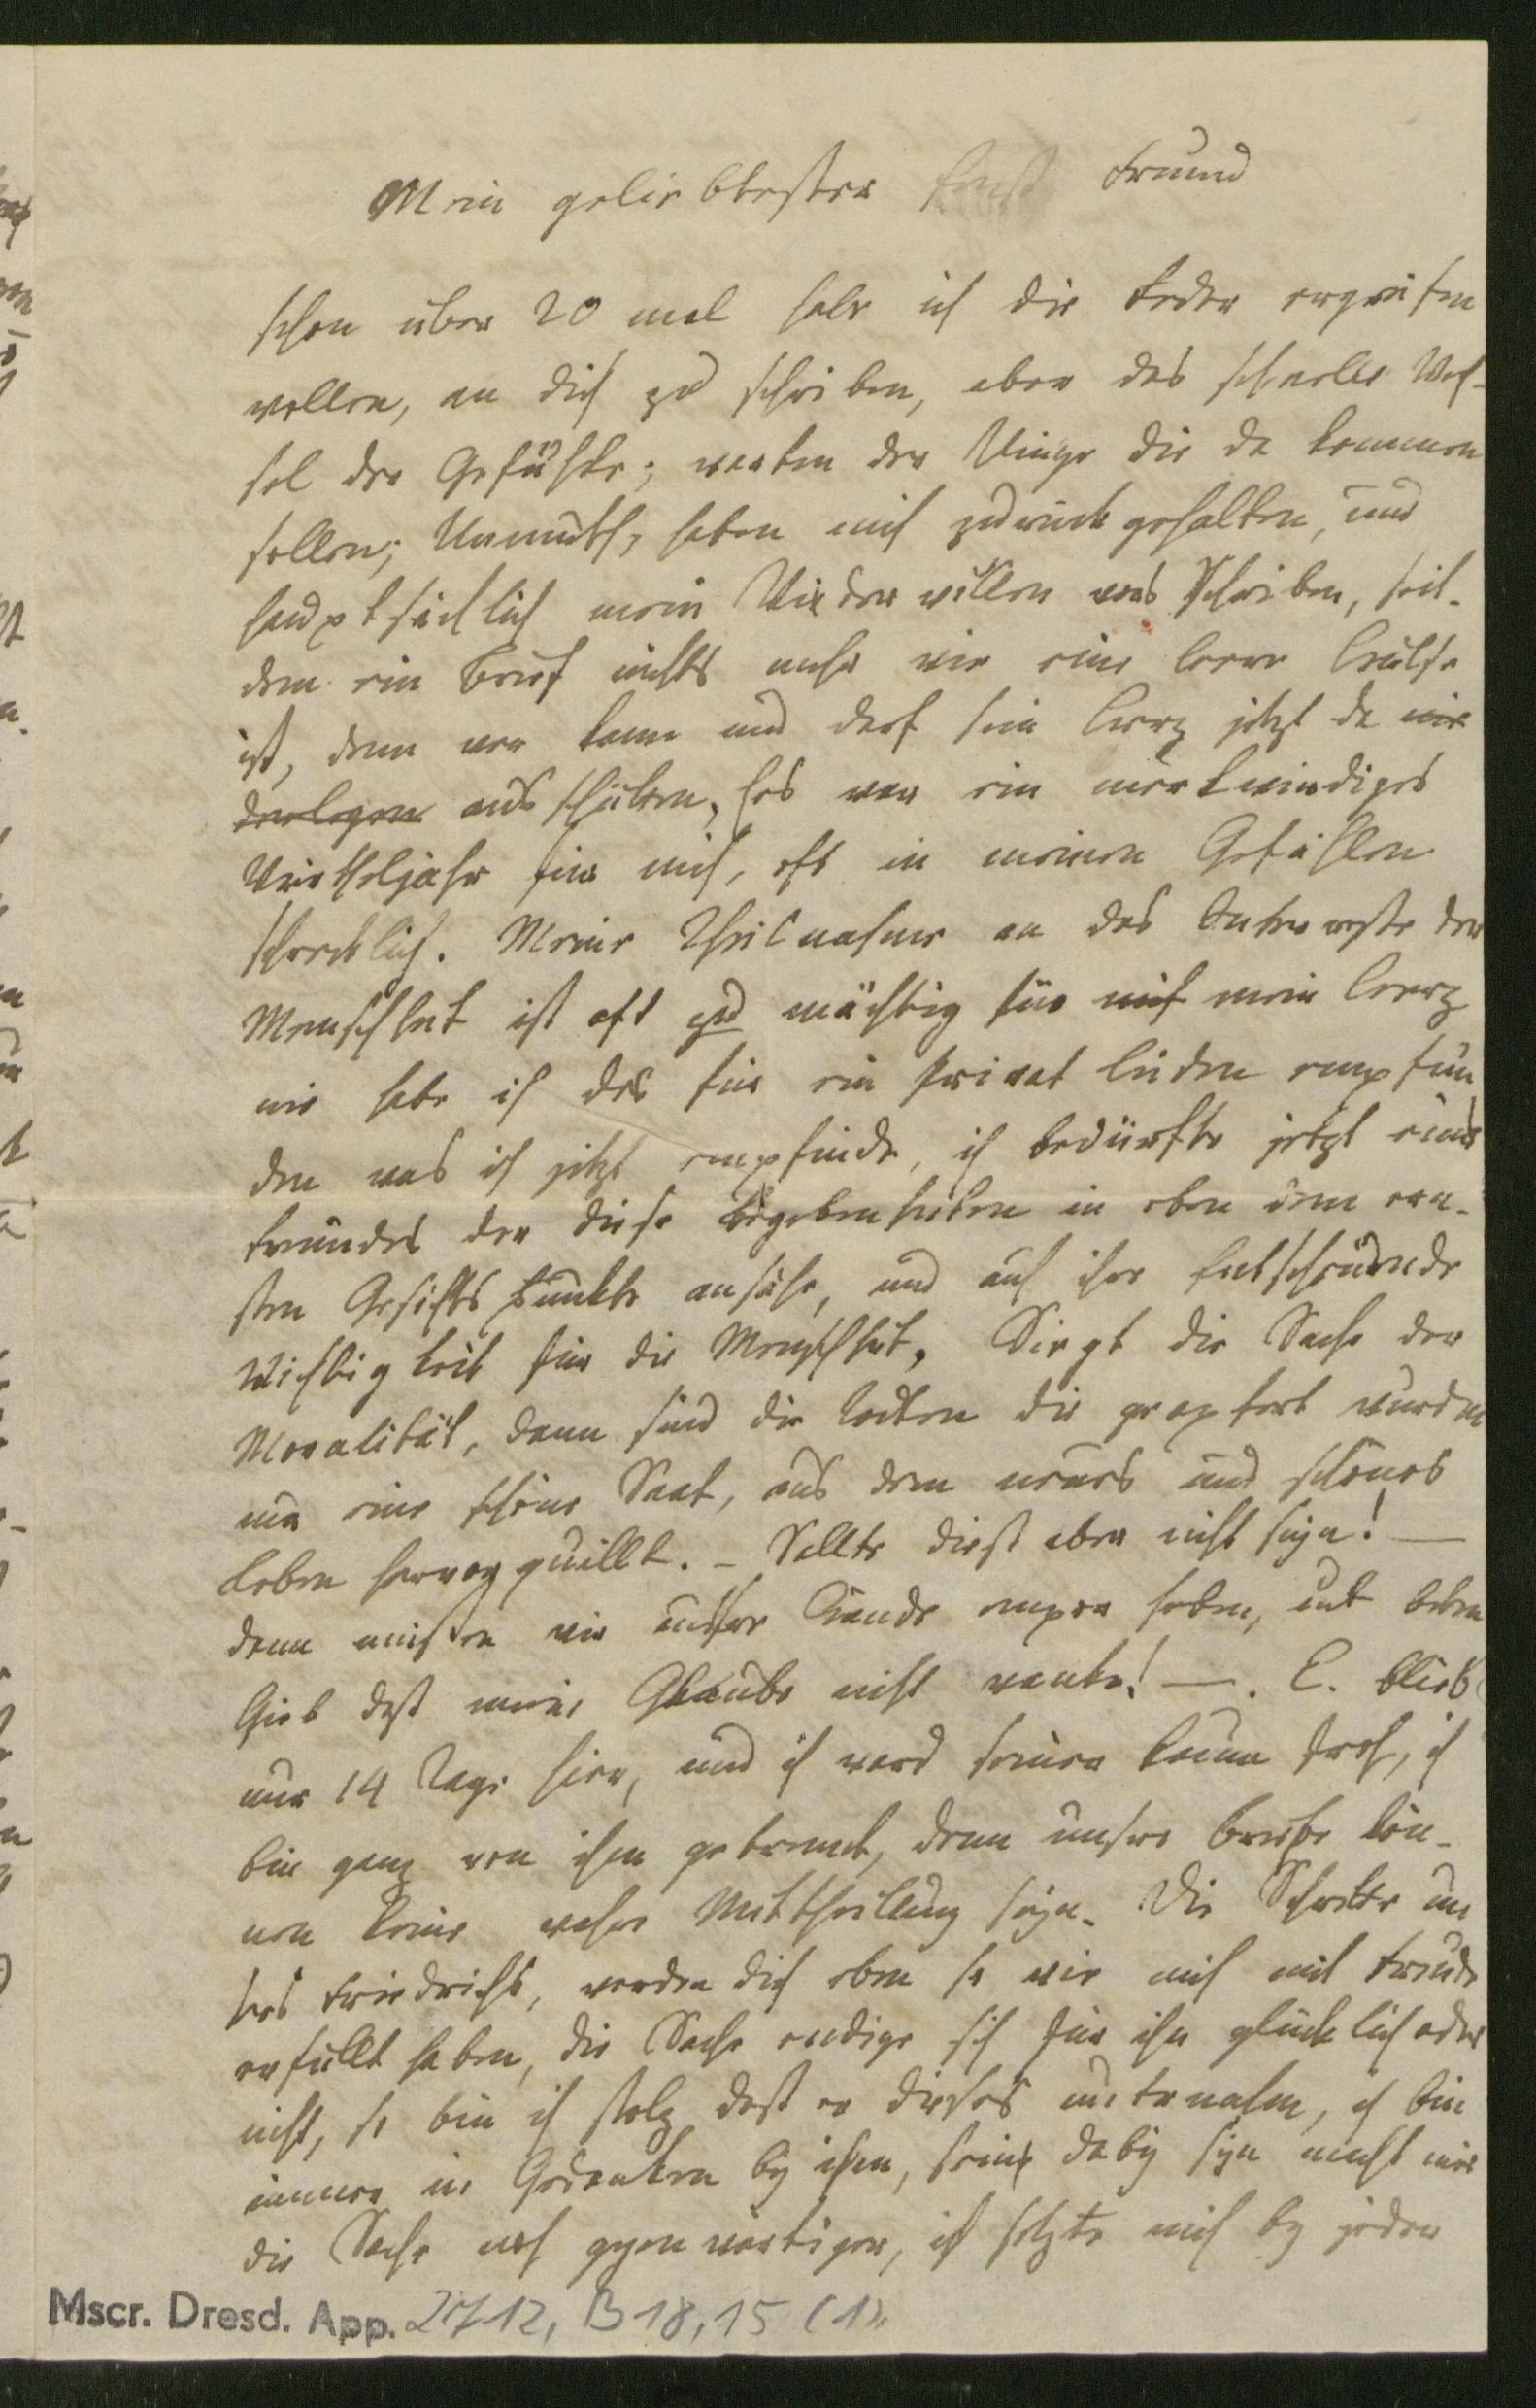 Mein geliebtester Freund
schon über 20 mal habe ich die Feder ergreifen
wollen, an dich zu schreiben, aber das schnelle Wech-
sel der Gefühle; warten der Dinge die da kommen
sollen; Unmuth, haben mich zurück gehalten, und
hauptsächlich mein Wiederwillen vors Schreiben, seit-
dem ein Brief nichts mehr wie eine leere Hülse
ist, denn wer kann und darf sein Herz jetzt da
ausschütten, Es war ein merkwürdiges
Vierteljahr für mich, oft in meinen Gefühlen
schrecklich. Meine Theilnahme an das Interesse der
Menschheit ist oft zu mächtig für mich mein Herz
nie habe ich das für ein privat Leiden empfun
den was ich jetzt empfinde, ich bedürfte jetzt eines
Freundes der diese Begebenheiten in eben dem ern-
sten Gesichts Punkte ansähe, und auch ihre Entscheidende
Wichtigkeit für die Menschheit. Siegt die Sache der
Moralität, dann sind die Todten die geopfert wurden
nur eine schöne Saat, aus dem neues und schönes
Leben hervorquillt. – Sollte diess aber nicht seyn! —
dann müssen wir unsre Hände empor heben, und beten
Gieb dass mein Glaube nicht wanke! —. C. blieb
nur 14 Tage hier, und ich ward seiner kaum froh, ich
bin ganz von ihm getrennt, denn unsre Briefe kön-
nen keine wahre Mittheilung seyn. Die Schritte un
sers Friedrichs, werden dich eben so wie mich mit Freude
erfüllt haben, die Sache endige sich für ihn glücklich oder
nicht, so bin ich stolz dass er dieses unternahm, ich bin
immer in Gedanken bey ihm, sein dabey seyn macht mir
die Sache noch gegenwärtiger, ich setzte mich bey jeden
Mscr. Dresd. App. 2712, B18,15 (1)